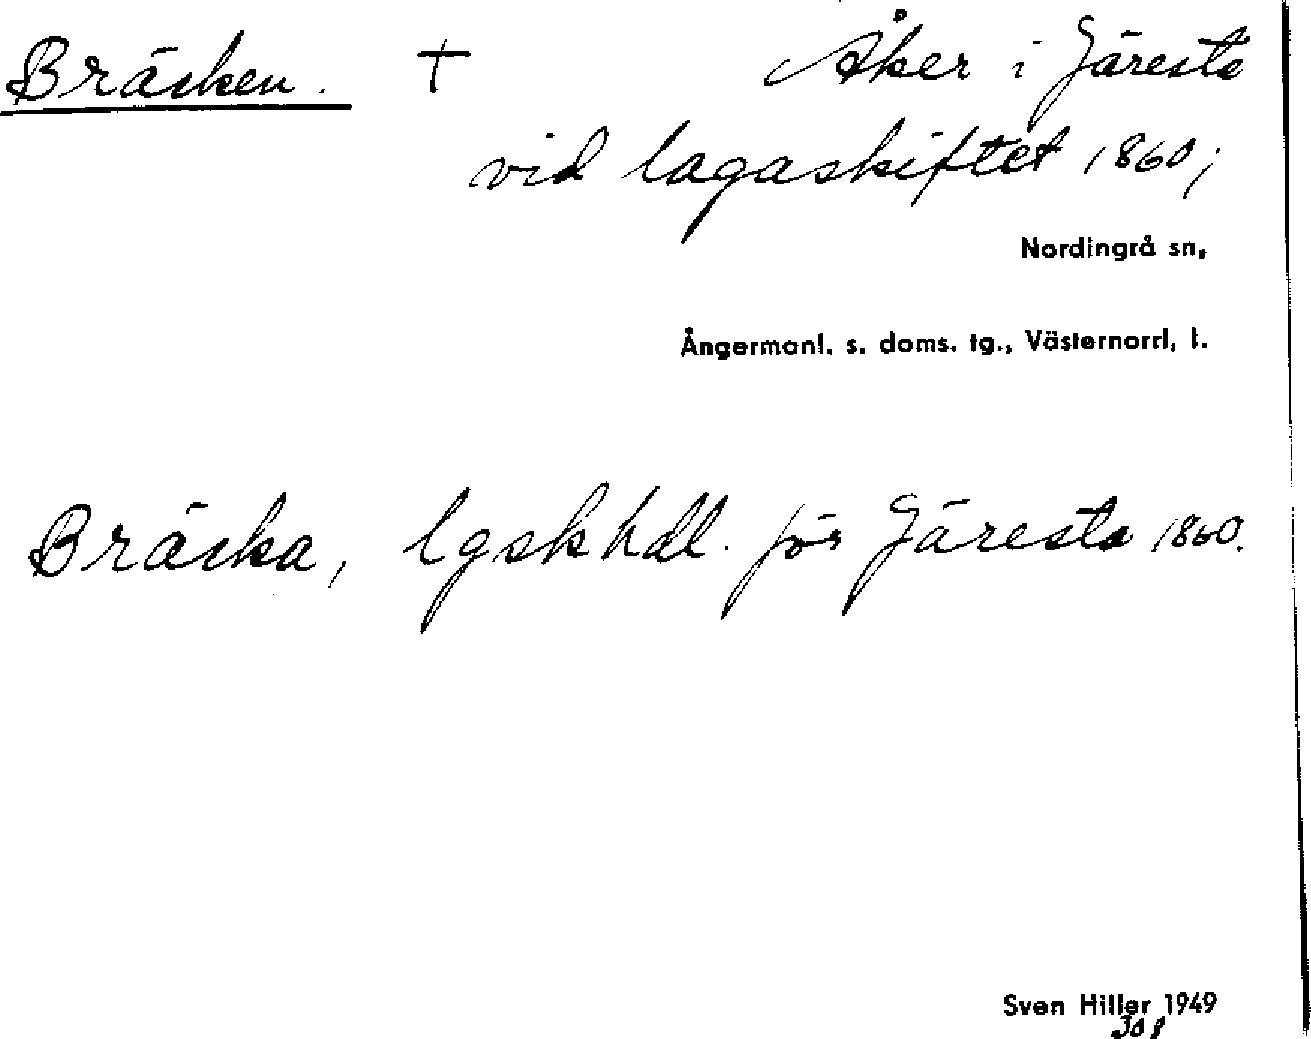 Bräsken. + Åker i Järesta
vid lagaskiftet 1860;
Nordingrå sn,
Ångermanl. s. doms. tg., Västernorrl. l.
Bräska, lgskhdl. för Järesta 1860.
Sven Hiller 1949
308